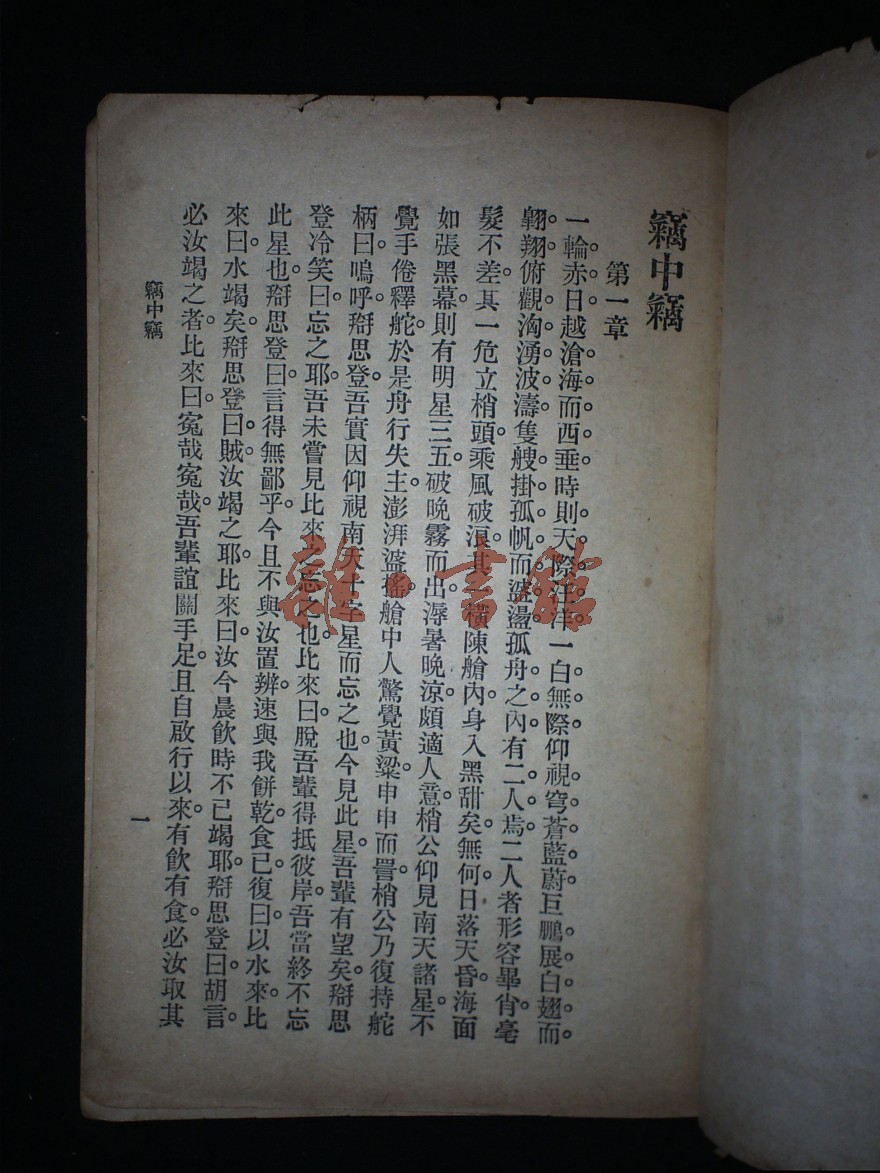 竊中竊
第一章
一輪赤日越滄海而西垂時則天際汪洋一白無際仰視穹蒼藍蔚巨鵬展白翅而。
翱翔俯觀洶湧波濤隻艘掛孤帆而盪孤舟之內有二人焉二人者形容畢肖毫
髮不差其一危立梢頭乘風破浪其一橫陳艙內身入黑甜矣。無何日落天昏。海面
如張黑幕則有明星三五破晚霧而出溽暑晚涼頗適人意梢公仰見南天諸星。不
覺手倦釋舵。於是舟行失主澎湃盪搖。艙中人驚覺黃粱。申申而詈。梢公乃復持舵
柄曰嗚呼搿思登。吾實因仰視南天十字星而忘之也。今見此星。吾輩有望矣。搿思
登冷笑曰。忘之耶。吾未嘗見比來之忘之也。比來曰。脫吾輩得抵彼岸。吾當終不忘
此星也。搿思登曰。言得無鄙乎。今且不與汝置辨。速與我餅乾食已。復曰。以水來。比
來曰。水竭矣。搿思登曰。賊汝竭之耶。比來曰。汝今晨飲時不已竭耶。搿思登曰。胡言。
必汝竭之者。比來曰。冤哉冤哉。吾輩誼關手足。且自啟行以來。有飲有食。必汝取其
竊中竊
一
雜·書館